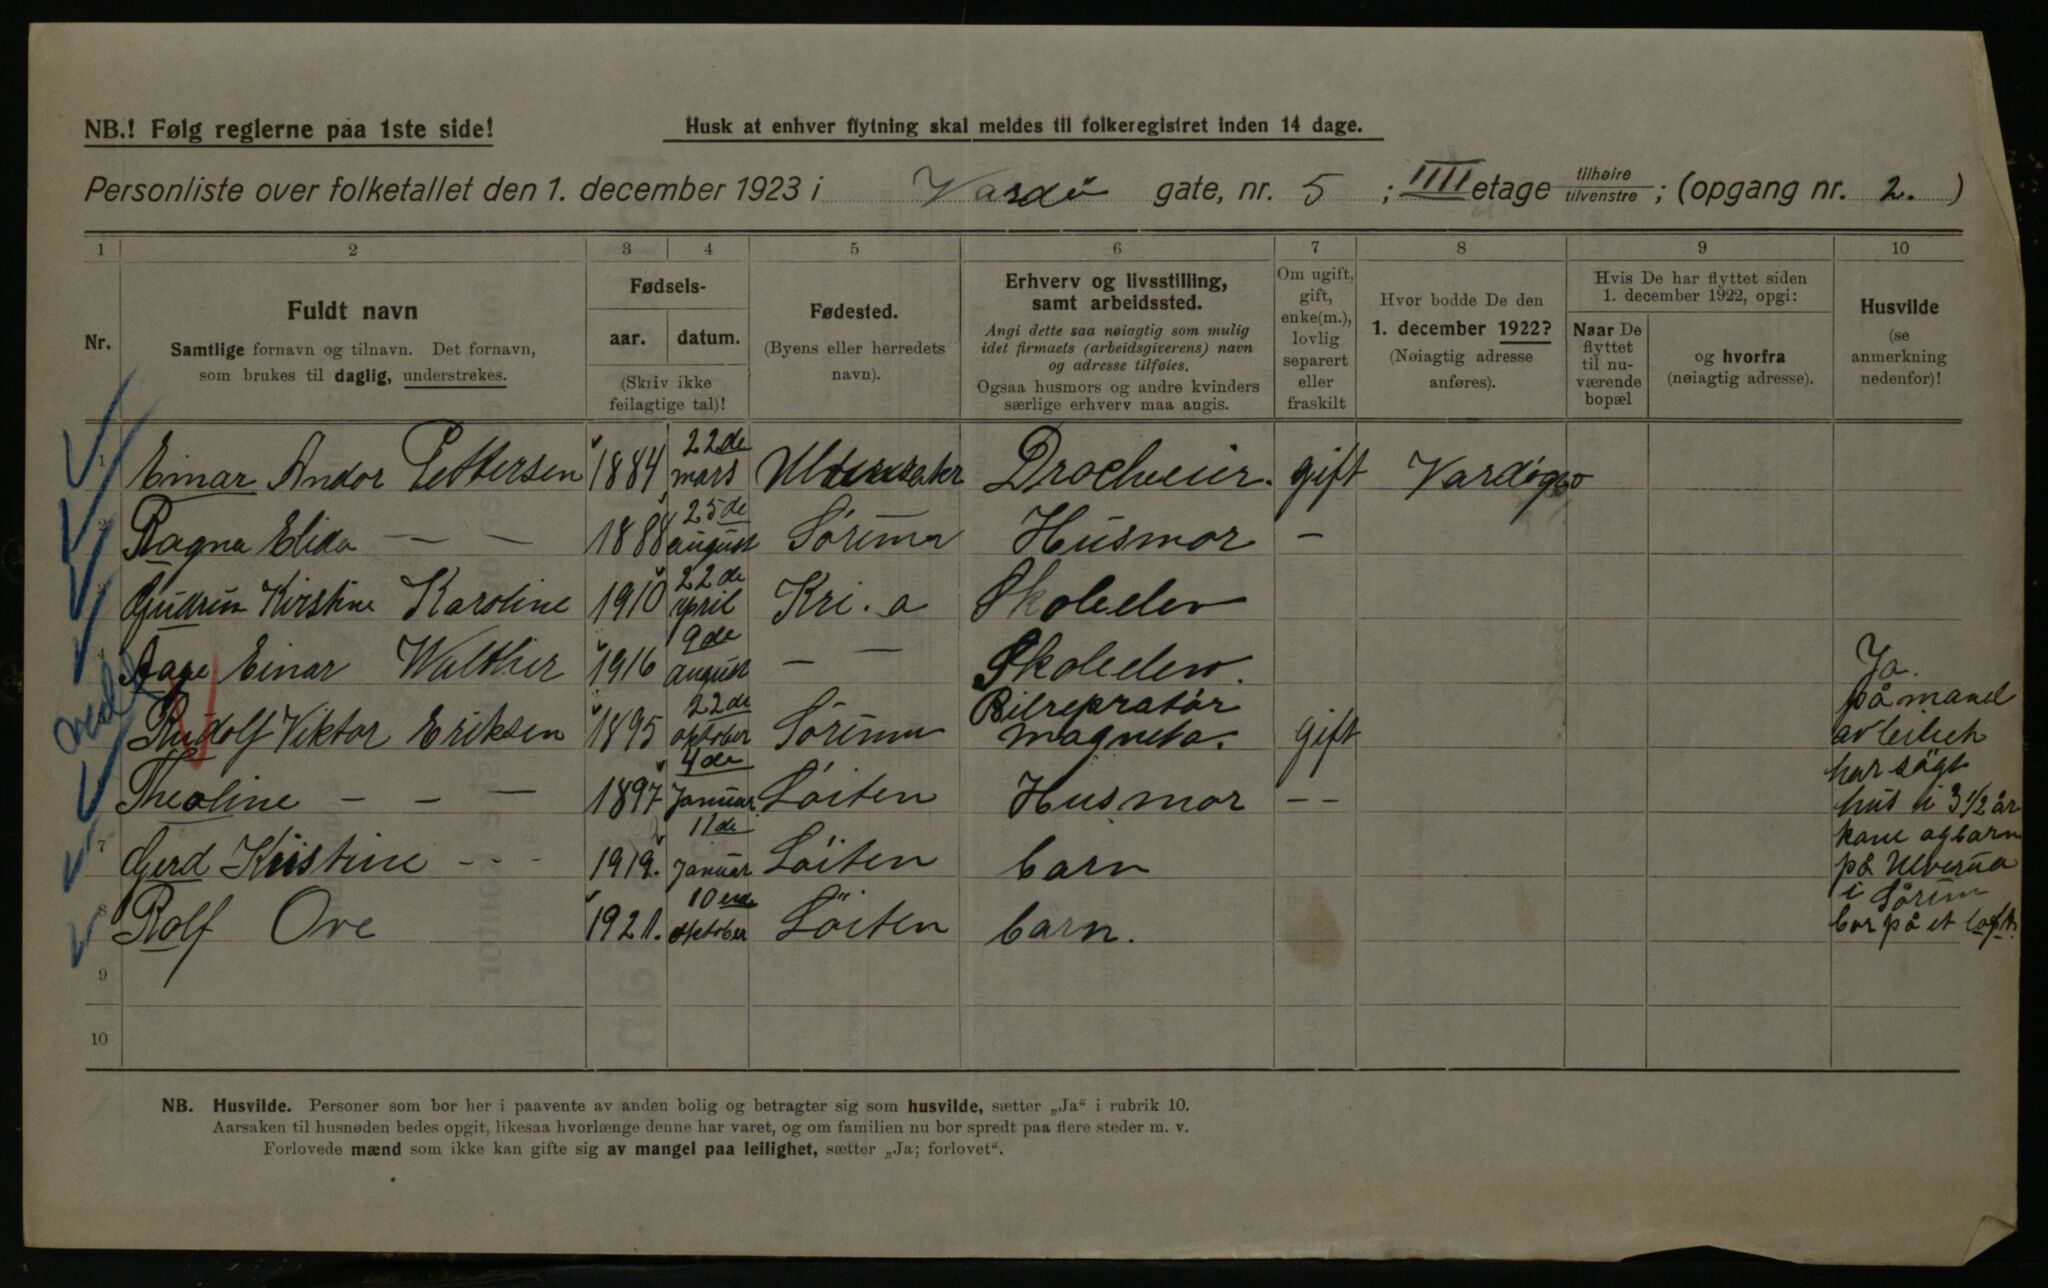 NB.! Følg reglerne paa 1ste side!
Husk at enhver flytning skal meldes til folkeregistret inden 14 dage.
Personliste over folketallet den 1. december 1923 i Vardø gate, nr. 5 ; IIII etage tilhøire tilvenstre ; (opgang nr. 2. )
1 2 3 4 5 6 7 8 9 10
Nr.
Fuldt navn
Samtlige fornavn og tilnavn. Det fornavn,
som brukes til daglig, understrekes.
Fødsels-
aar. datum.
(Skriv ikke
feilagtige tal)!
Fødested.
(Byens eller herredets
navn).
Erhverv og livsstilling,
samt arbeidssted.
Angi dette saa nøiagtig som mulig
idet firmaets (arbeidsgiverens) navn
og adresse tilføies.
Ogsaa husmors og andre kvinders
særlige erhverv maa angis.
Om ugift,
gift,
enke(m.),
lovlig
separert
eller
fraskilt
Hvor bodde De den
1. december 1922?
(Nøiagtig adresse
anføres).
Hvis De har flyttet siden
1. december 1922, opgi:
Naar De
flyttet
til nu-
værende
bopæl
og hvorfra
(nøiagtig adresse).
Husvilde
(se
anmerkning
nedenfor)!
1 Einar Andor Pettersen 1884 22de mars gift
2 Ragna Elida — — 1888 25de august Sørum Husmor —
3 Gudrun Kirstine Karoline 1910 22de april Kri.a Skoleelev
4 Aage Einar Walther 1916 9de august — — Skoleelev.
Rudolf Viktor Eriksen 1895 22de oktober Sørum Bilrepratør magneto. gift
Theoline — — — 1897 4de Januar Löiten Husmor — —
7 Gerd Kristine - - - 1919. 11de Januar Löiten barn
8 Rolf Ove 1921. 10ende oktober Löiten barn.
9
10
Ja.
på mand
av leiligh
har søgt
hus i 3 1/2 år
kone og barn
på
i Sörum
bor på et loft.
NB. Husvilde. Personer som bor her i paavente av anden bolig og betragter sig som husvilde, sætter „Ja“ i rubrik 10.
Aarsaken til husnøden bedes opgit, likesaa hvorlænge denne har varet, og om familien nu bor spredt paa flere steder m. v.
Forlovede mænd som ikke kan gifte sig av mangel paa leilighet, sætter „Ja; forlovet“.